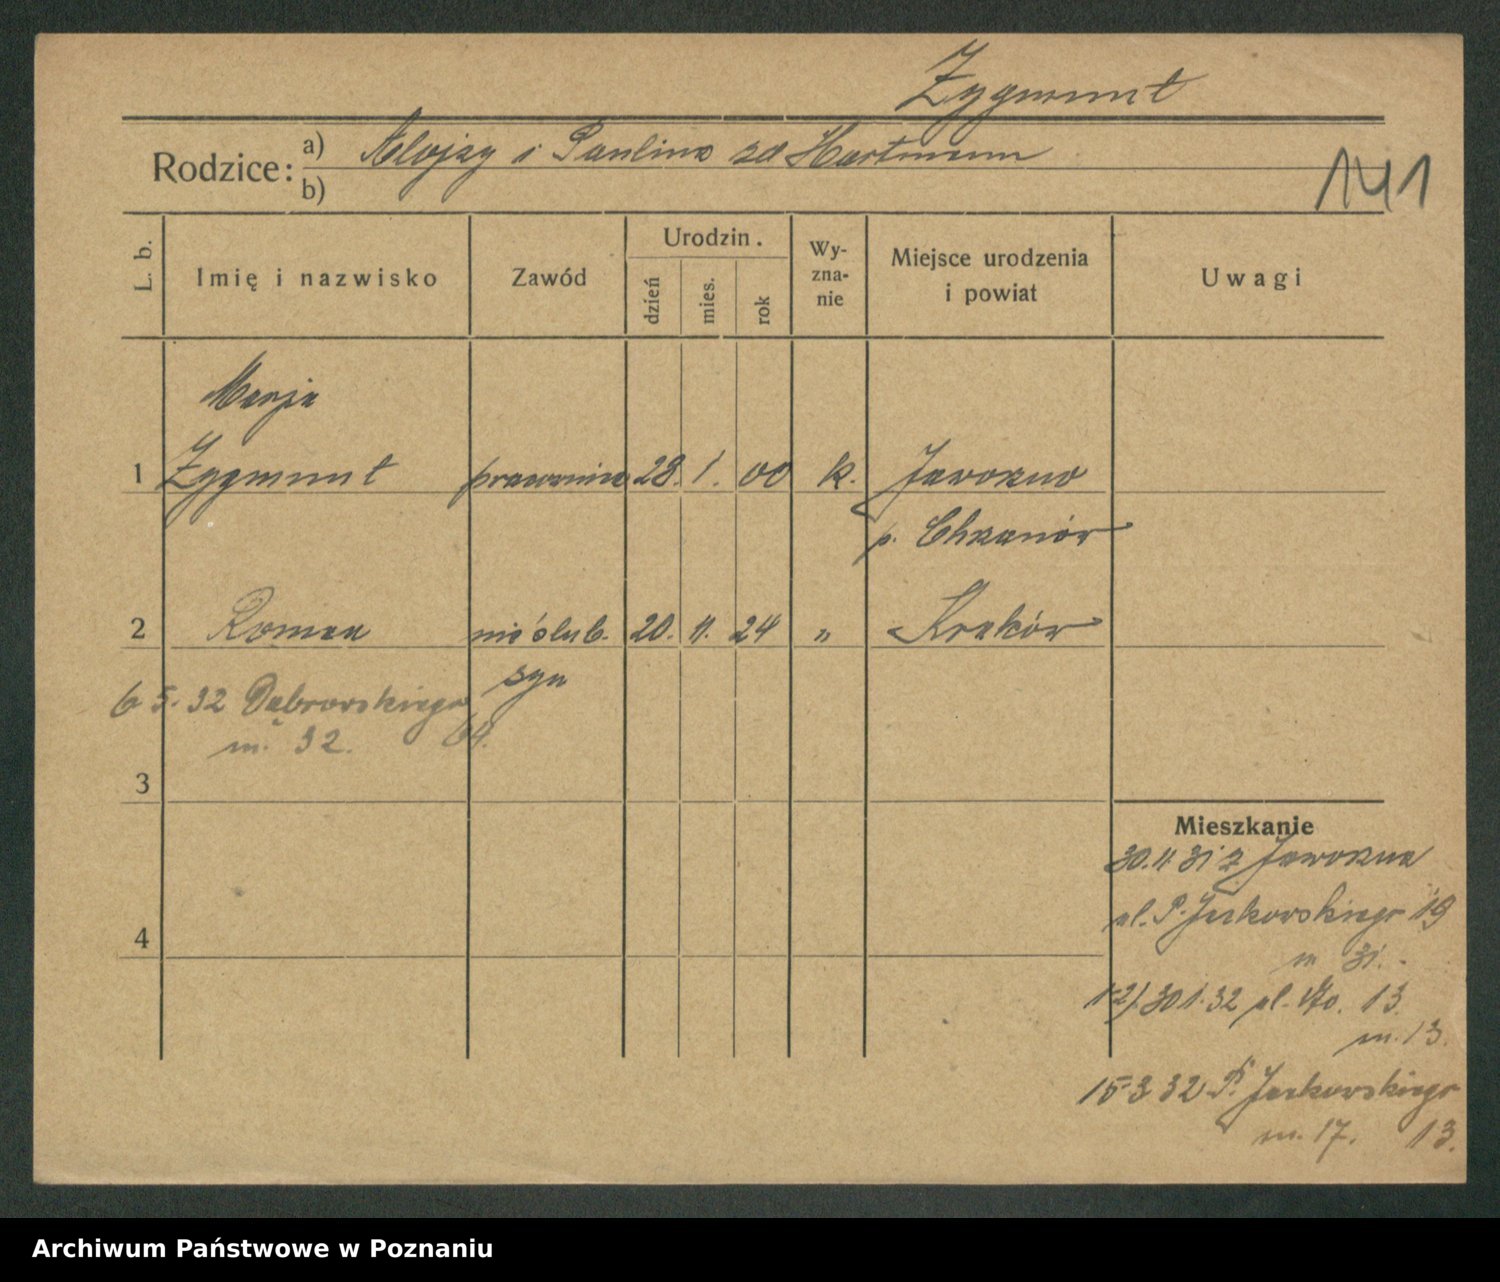 Zygmunt
Rodzice:
a) Alojzy i Paulina zd Hartmann
b)
141
L. b.
Imię i nazwisko
Zawód
Urodzin.
dzień
mies.
rok
Wy-
zna-
nie
Miejsce urodzenia
i powiat
Uwagi
Marja
1 Zygmunt 28. 1. 00 k. Jaworzno
p. Chrzanów
2 Roman nieślub. 20. 11. 24 „ Kraków
syn
6 5. 32 Dąbrowskiego
m. 32. 64.
3
Mieszkanie
30. 11 31 z Jaworzna
ul. P. Jackowskiego 19
m 31.
4
1-2). 30 1. 32 pl. 13.
m. 13.
15 3 32 P. Jackowskiego
m. 17. 13.
Archiwum Państwowe w Poznaniu